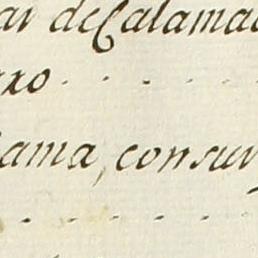 ar de Calama
xo . . . . .
ama, consu
. . . . .